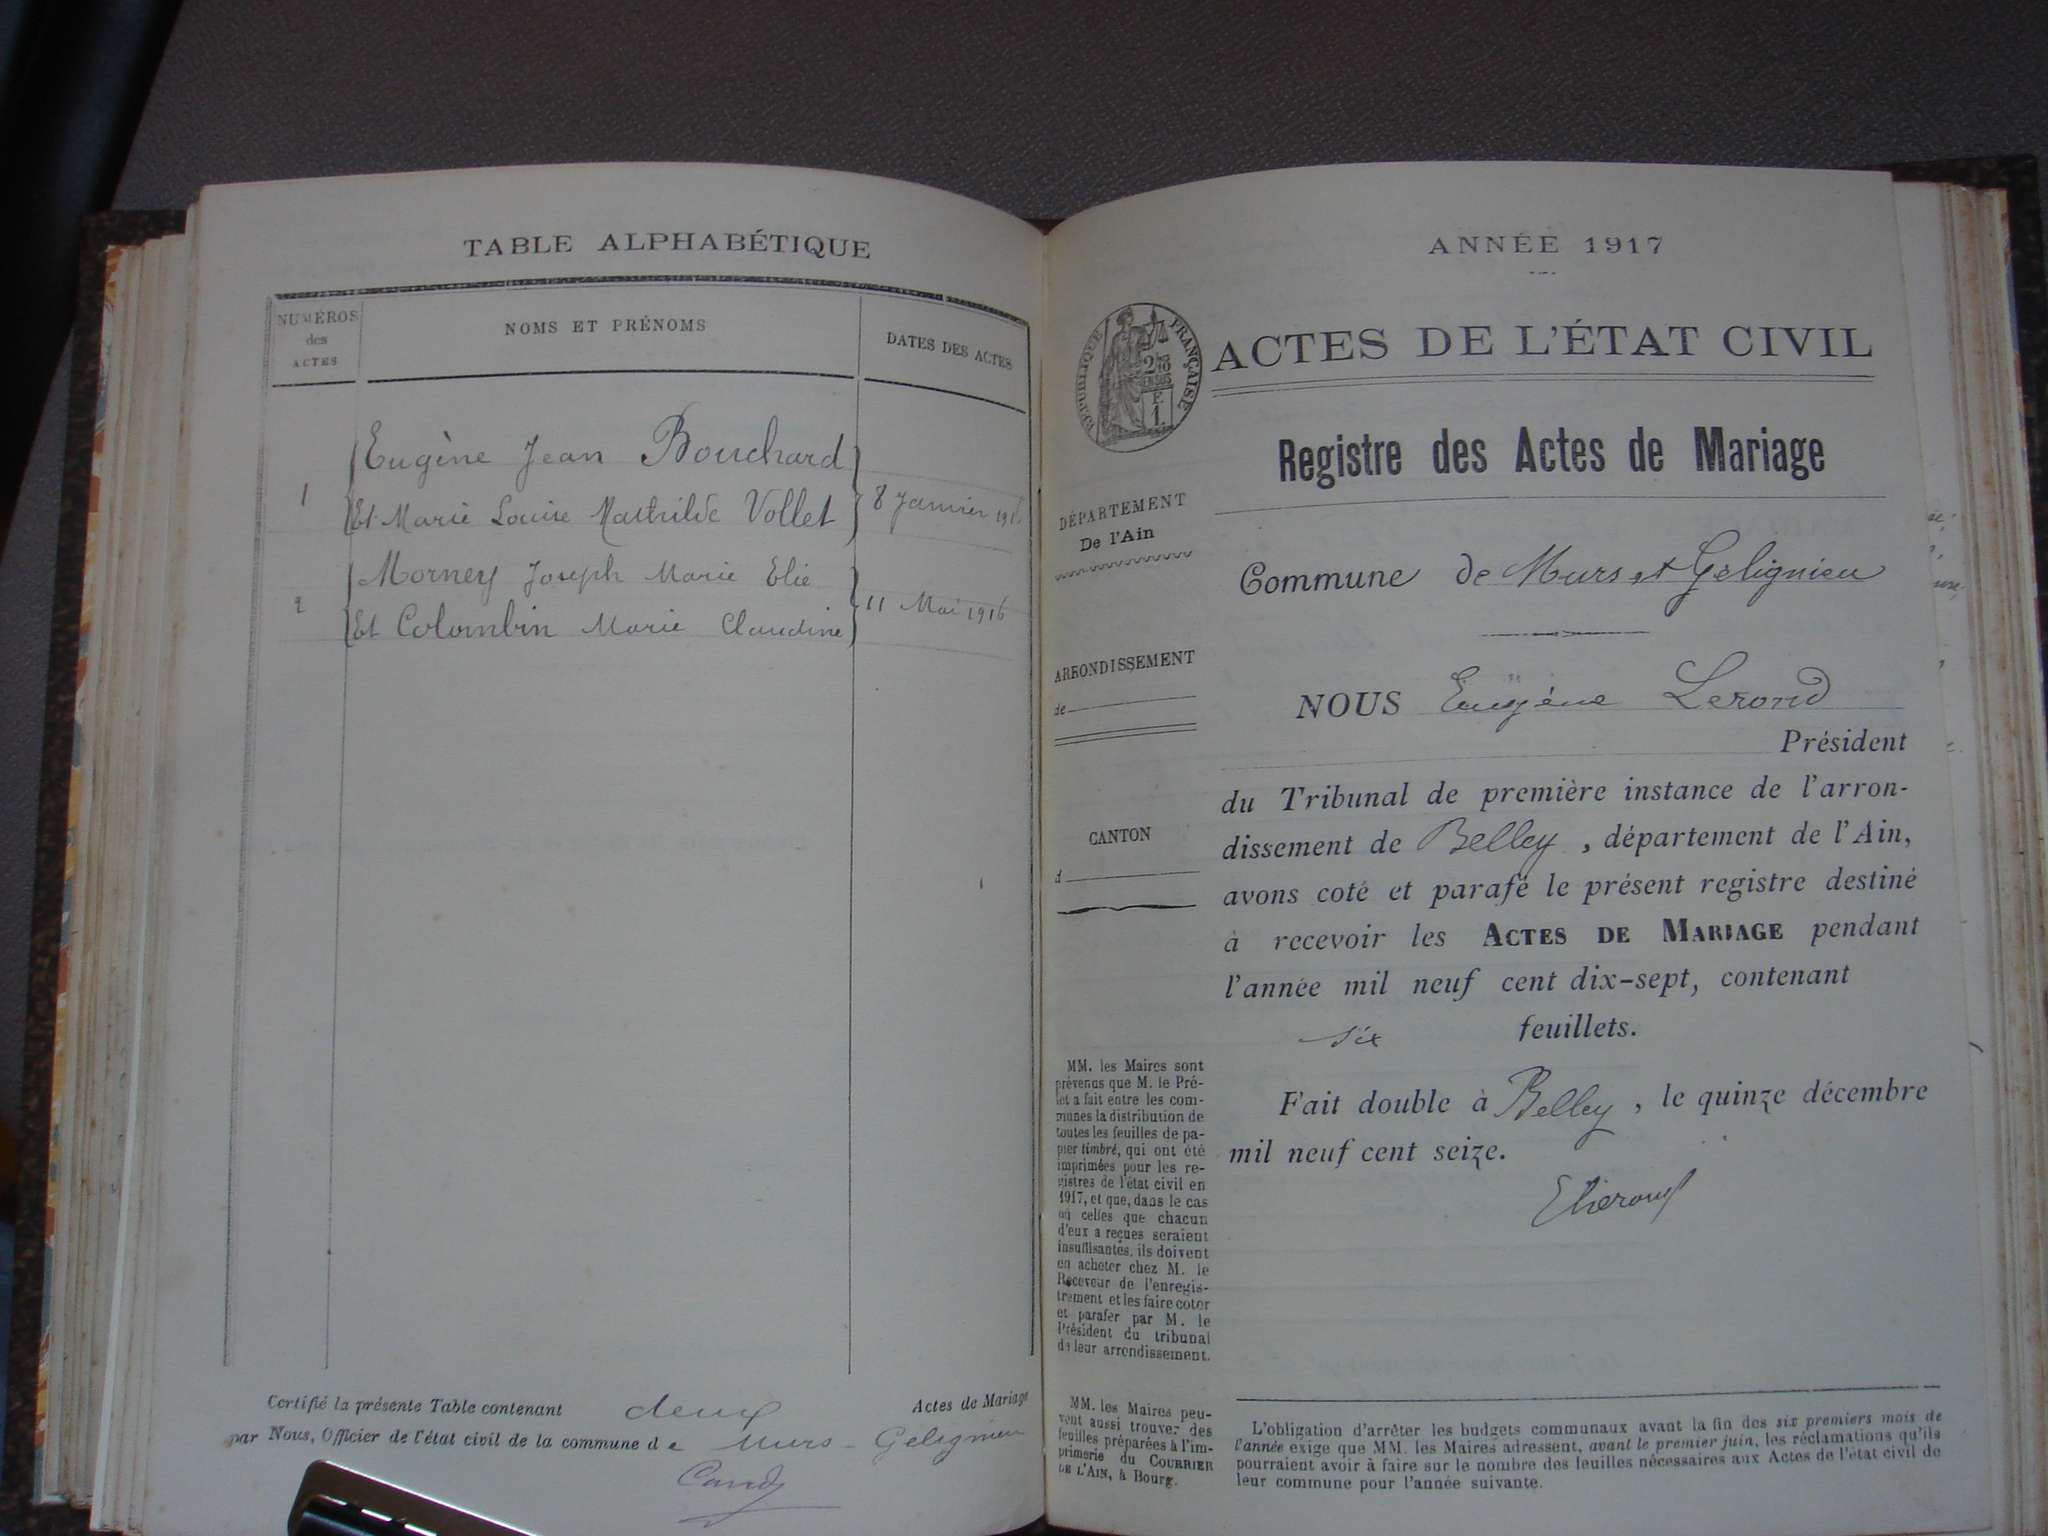 TABLE ALPHABÉTIQUE
NUMÉROS des ACTES
NOMS ET PRÉNOMS
DATES DES ACTES
1
Eugène Jean Bouchard
Et Marie Louise Mathilde Vollet
8 Janvier 1916
2
Morney Joseph Marie Elie
Et Colombin Marie Claudine
11 Mai 1916
Certifié la présente Table contenant deux Actes de Mariage
par Nous, Officier de l'état civil de la commune de Murs-Gelignieu
ANNÉE 1917
RÉPUBLIQUE FRANÇAISE
ACTES DE L'ÉTAT CIVIL
Registre des Actes de Mariage
DÉPARTEMENT
De l'Ain
Commune de Murs et Gelignieu
ARRONDISSEMENT
de
NOUS Eugène Lerond
Président
du Tribunal de première instance de l'arron-
dissement de Belley, département de l'Ain,
avons coté et parafé le présent registre destiné
à recevoir les ACTES DE MARIAGE pendant
l'année mil neuf cent dix-sept, contenant
six feuillets.
CANTON
d
Fait double à Belley, le quinze décembre
mil neuf cent seize.
MM. les Maires sont
prévenus que M. le Pré-
fet a fait entre les com-
munes la distribution de
toutes les feuilles de pa-
pier timbré, qui ont été
imprimées pour les re-
gistres de l'état civil en
1917, et que, dans le cas
où celles que chacun
d'eux a reçues seraient
insuffisantes, ils doivent
en acheter chez M. le
Receveur de l'enregis-
trement et les faire coter
et parafer par M. le
Président du tribunal
de leur arrondissement.
MM. les Maires peu-
vent aussi trouver des
feuilles préparées à l'im-
primerie du COURRIER
DE L'AIN, à Bourg.
L'obligation d'arrêter les budgets communaux avant la fin des six premiers mois de
l'année exige que MM. les Maires adressent, avant le premier juin, les réclamations qu'ils
pourraient avoir à faire sur le nombre des feuilles nécessaires aux Actes de l'état civil de
leur commune pour l'année suivante.